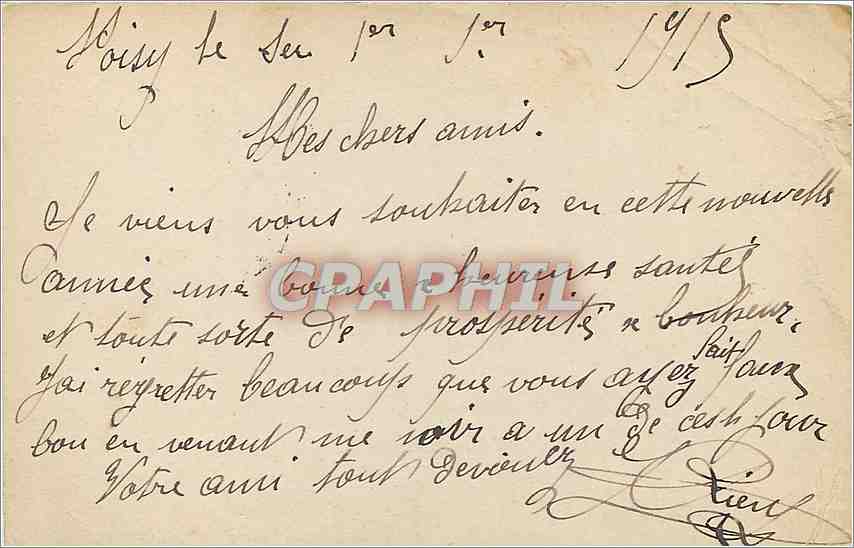 Noisy le Sec 1er Jer 1915
Mes chers amis.
Je viens vous souhaiter en cette nouvelle
année une bonne & heureuse santé
CPAPHIL
et toute sorte de prospérité & bonheur.
J'ai régretter beaucoup que vous ayez fait faux
bon en venant me voir a un de cest jour
Votre ami tout Devouer